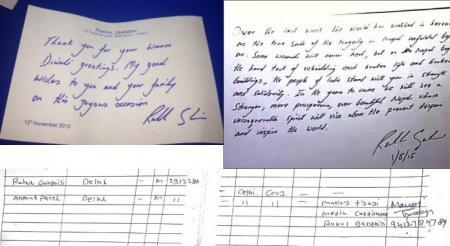 RAHUL GANDHI
Thank you for your warm
Diwali greetings. My good
wishes to you and your family
on this joyous occasion
13th November 2012
Over the last week the world has watched in horror
as the true scale of the tragedy in Nepal unfolded
Some wounds will never heal, but as the Nepal begins
the hard task of rebuilding each broken life and broken
buildings, the people of India stand with you in strength
and solidarity. In the years to come we will see a
stronger, more prosperous, ever beautiful Nepal whose
unconquerable spirit will rise above the present despair
and inspire the world.
1/5/15
Rahul Gandhi Delhi - M
Ahmad Patel Delhi - M 11
- Delhi Cong - -
- 11 11 -
Manoj Tyagi
Media Coordinator